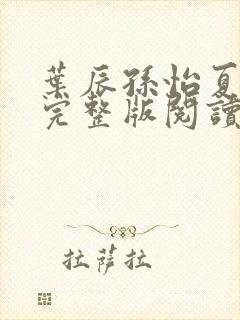 葉辰孫怡夏
完整版閱讀
拉薩拉